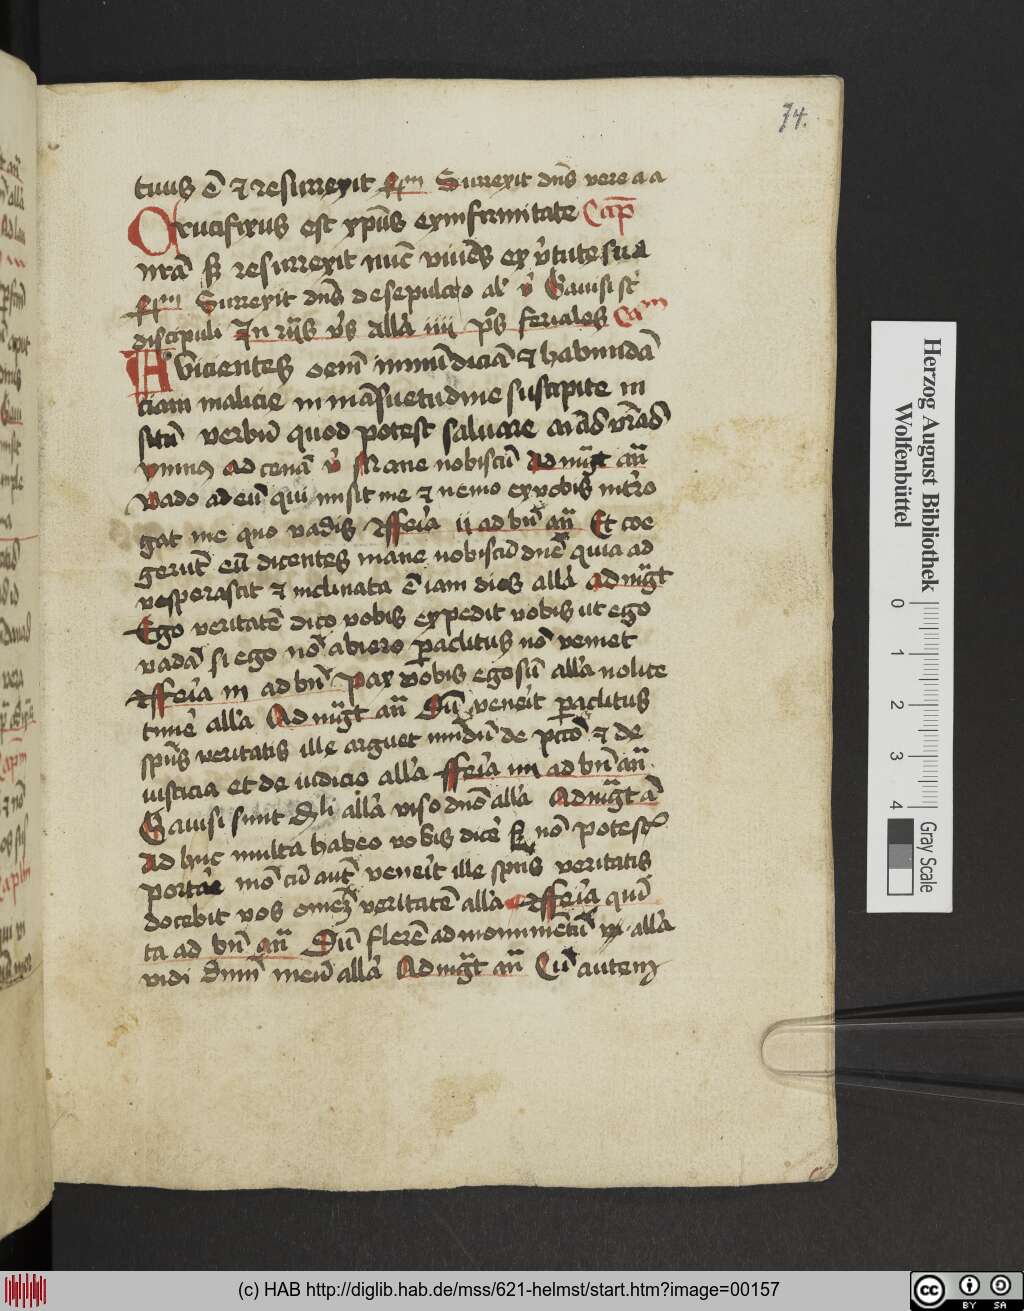 74.
tuus ē ⁊ resurrexit Rm Surrexit dn̄s vere a a
Crucifixus est xp̄us ex infirmitate Cap̄
nr̄a s; resurrexit nūc viuēs ex v̓tute sua
Rm Surrexit dn̄s de sepulcro al' v̓ Gauisi st̄
discipuli In rijs v̓s alla iiii pꝰs feriales Ca
Abicientes oem̄ inmūdiciā ⁊ habundā
ciam malicie in māsuetudine suscipite in
sitū verbū quod potest saluare aīas vr̄as
ymnꝰ ad cenā v̓ Mane nobiscū Ad mgt an̄
Vado ad eū qui misit me ⁊ nemo ex vobis int̓ro
gat me quo vadis ffeīa ii ad bn̄ an̄ Et coe
gerūt eū dicentes mane nobiscū dn̄e quia ad
vesperascit ⁊ inclinata ē iam dies alla ad mgt
Ego veritatē dico vobis expedit vobis ut ego
vadā si ego nō abiero paclitus nō veniet
ffeīa iii ad bn̄ Pax vobis ego sū alla nolite
timē alla Ad mgt an̄ Cū venēit paclitus
sp̄us veritatis ille arguet mūdū de pctō ⁊ de
iusticia et de iudicio alla ffeīa iiii ad bn̄ an̄
Gauisi sunt dli alla viso dnō alla Ad mgt ā
Ad huc multa habeo vobis dicē s; nō potestꝭ
portāe mō cū aut̄ venēit ille sp̄us veritatis
docebit vos omēꝫ veritatē alla ffeīa quī
ta ad bn̄ an̄ Dū flerē ad monumētū vi alla
vidi dnm̄ meū alla Ad mgt an̄ Cū autem
Herzog August Bibliothek
Wolfenbüttel
0 1 2 3 4
Gray Scale
(c) HAB http://diglib.hab.de/mss/621-helmst/start.htm?image=00157
cc BY SA